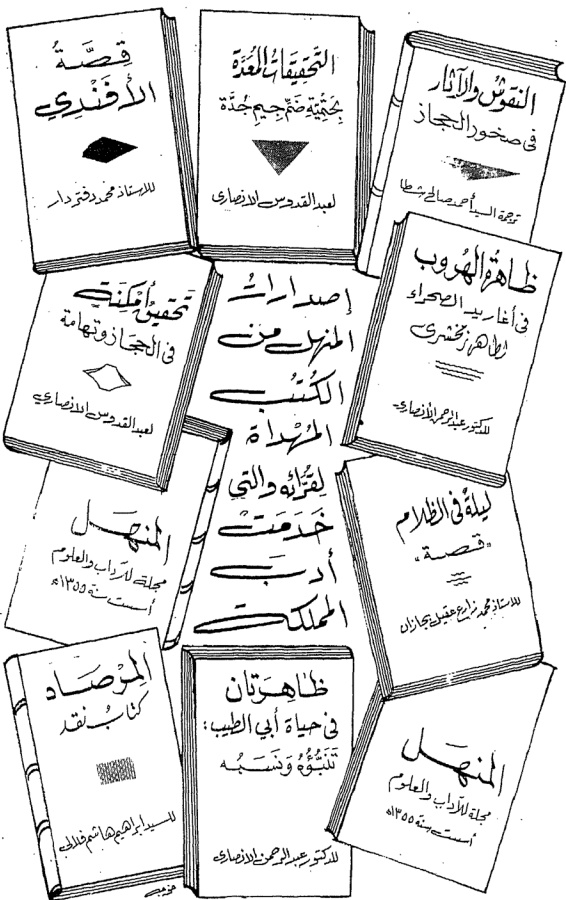 النقوش والآثار
في صخور الحجاز
ترجمة السيد أحمد صالح شطا
التحقيقات المعدة
بحتمية ضم جيم جُدَّة
لعبد القدوس الانصاري
قصة
الأفندي
للاستاذ محمد دفتردار
ظاهرة الهروب
في أغاريد الصحراء
لطاهر زمخشرى
للدكتور عبد الرحمن الانصاري
إصدارات
المنهل من
الكتب
المهداة
لقرائه والتي
خدمت
أدب
المملكت
تحقيق أمكنة
في الحجاز وتهامة
لعبد القدوس الانصاري
ليلة في الظلام
"قصة"
للاستاذ محمد زارع عقيل بجازان
المنهل
مجلة للآداب والعلوم
أسست سنة ١٣٥٥ه
المنهل
مجلة للآداب والعلوم
أسست سنة ١٣٥٥ه
ظاهرتان
في حياة أبي الطيب:
تنبؤه ونسبه
للدكتور عبد الرحمن الانصاري
المرصاد
كتاب نقد
للسيد ابراهيم هاشم فلالي